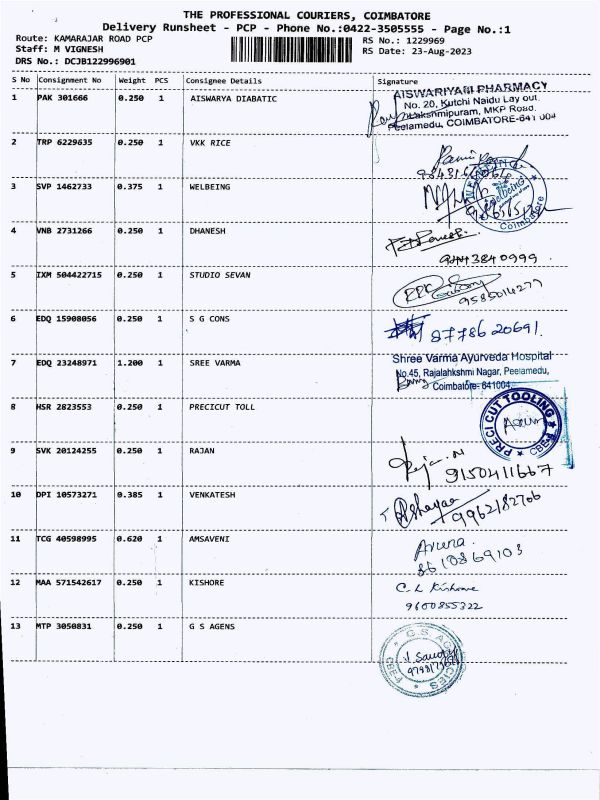 THE PROFESSIONAL COURIERS, COIMBATORE
Delivery Runsheet - PCP - Phone No.:0422-3505555 - Page No.:1
Route: KAMARAJAR ROAD PCP RS No.: 1229969
Staff: M VIGNESH RS Date: 23-Aug-2023
DRS No.: DCJB122996901
S No Consignment No Weight PCS Consignee Details Signature
1 PAK 301666 0.250 1 AISWARYA DIABATIC
AISWARIYAM PHARMACY
No. 20, Kutchi Naidu Lay out,
Lakshmipuram, MKP Road,
Peelamedu, COIMBATORE-641 004
2 TRP 6229635 0.250 1 VKK RICE
3 SVP 1462733 0.375 1 WELBEING
Coimbatore
4 VNB 2731266 0.250 1 DHANESH
5 IXM 504422715 0.250 1 STUDIO SEVAN
9585014277
6 EDQ 15908056 0.250 1 S G CONS
8778620691
7 EDQ 23248971 1.200 1 SREE VARMA
Shree Varma Ayurveda Hospital
No.45, Rajalahkshmi Nagar, Peelamedu,
Coimbatore- 641004
8 HSR 2823553 0.250 1 PRECICUT TOLL
PRECI CUT TOOLING
CBE-4
9 SVK 20124255 0.250 1 RAJAN
Raja. N
9150411667
10 DPI 10573271 0.385 1 VENKATESH
9962182706
11 TCG 40598995 0.620 1 AMSAVENI
Aruna.
8610869103
12 MAA 571542617 0.250 1 KISHORE
C. L Kishore
9600855322
13 MTP 3050831 0.250 1 G S AGENS
G.S. AGENCIES
CBE-4